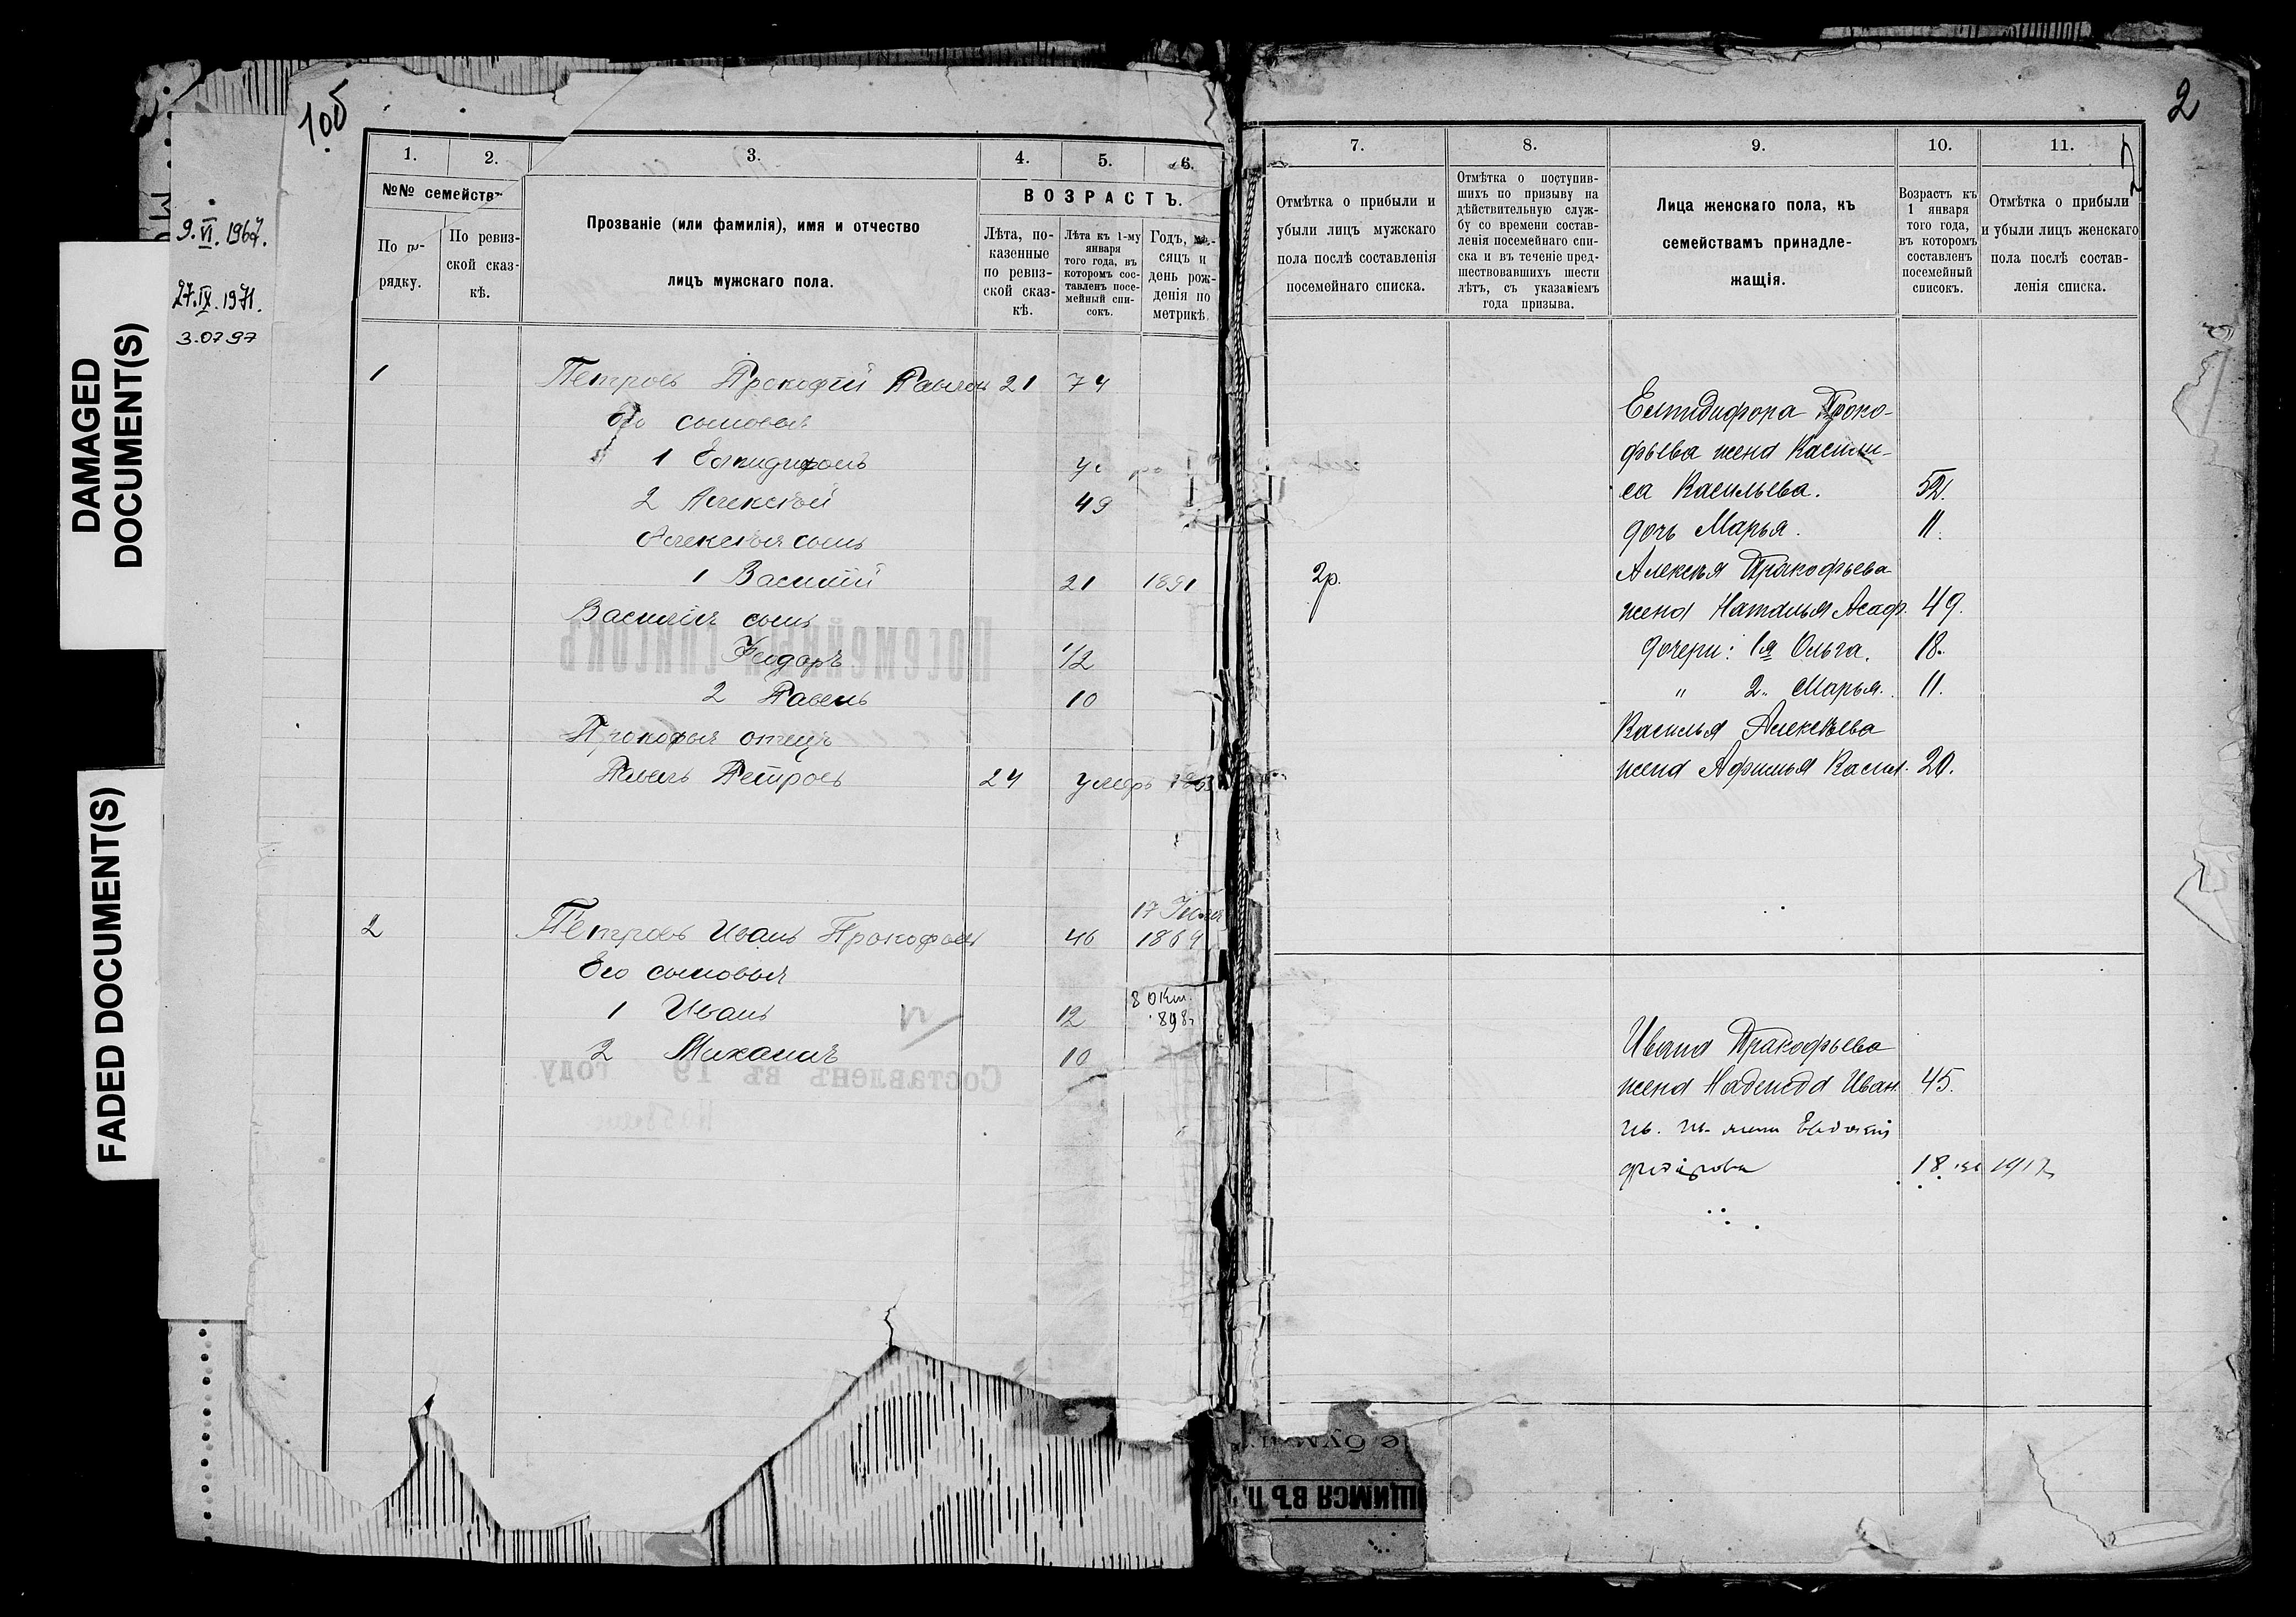 DAMAGED
DOCUMENT(S)
FADED DOCUMENT(S)
9.VI.1967.
27.IX.1971.
3.07.97
1об
1. 2. 3. 4. 5. 6.
№№ семействъ
По по-
рядку.
По ревиз-
ской сказ-
кѣ.
Прозваніе (или фамилія), имя и отчество
лицъ мужскаго пола.
ВОЗРАСТЪ.
Лѣта, по-
казенные
по ревиз-
ской сказ-
кѣ.
Лѣта къ 1-му
января
того года, въ
которомъ сос-
тавленъ посе-
мейный спи-
сокъ.
Годъ, мѣ-
сяцъ и
день рож-
денія по
метрикѣ.
1 Петровъ Прокофій Павлов 21 74
Его сыновья
1 Елпидифоръ
2 Алексѣй 49
Алексѣя сынъ
1 Василій 21 1891
Василія сынъ
Ѳеодоръ 1/2
2 Павелъ 10
Прокофья отецъ
Павелъ Петровъ 24 умеръ
17 Іюля
2 Петровъ Иванъ Прокофьев 46 1869
Его сыновья
1 Иванъ 12
8 Окт.
898
2 Михаилъ 10
Посемейный списокъ
Составленъ въ 19 году.
2
7. 8. 9. 10. 11.
Отмѣтка о прибыли и
убыли лицъ мужскаго
пола послѣ составленія
посемейнаго списка.
Отмѣтка о поступив-
шихъ по призыву на
дѣйствительную служ-
бу со времени состав-
ленія посемейнаго спи-
ска и въ теченіе пред-
шествовавшихъ шести
лѣтъ, съ указаніемъ
года призыва.
Лица женскаго пола, къ
семействамъ принадле-
жащія.
Возрастъ къ
1 января
того года,
въ которомъ
составленъ
посемейный
списокъ.
Отмѣтка о прибыли
и убыли лицъ женскаго
пола послѣ состав-
ленія списка.
Елпидифора Проко-
фьева жена Васили-
са Васильева. 52.
дочь Марья. 11.
2р. Алексѣя Прокофьева
жена Наталья Агаф. 49.
дочери: 1я Ольга. 18.
" 2. Марья. 11.
Василья Алексѣева
жена Афимья Васил. 20.
Ивана Прокофьева
жена Надежда Иван. 45.
Ив. Ив. жена Евдокія
18 1917
ЩИМСЯ ВЪ П